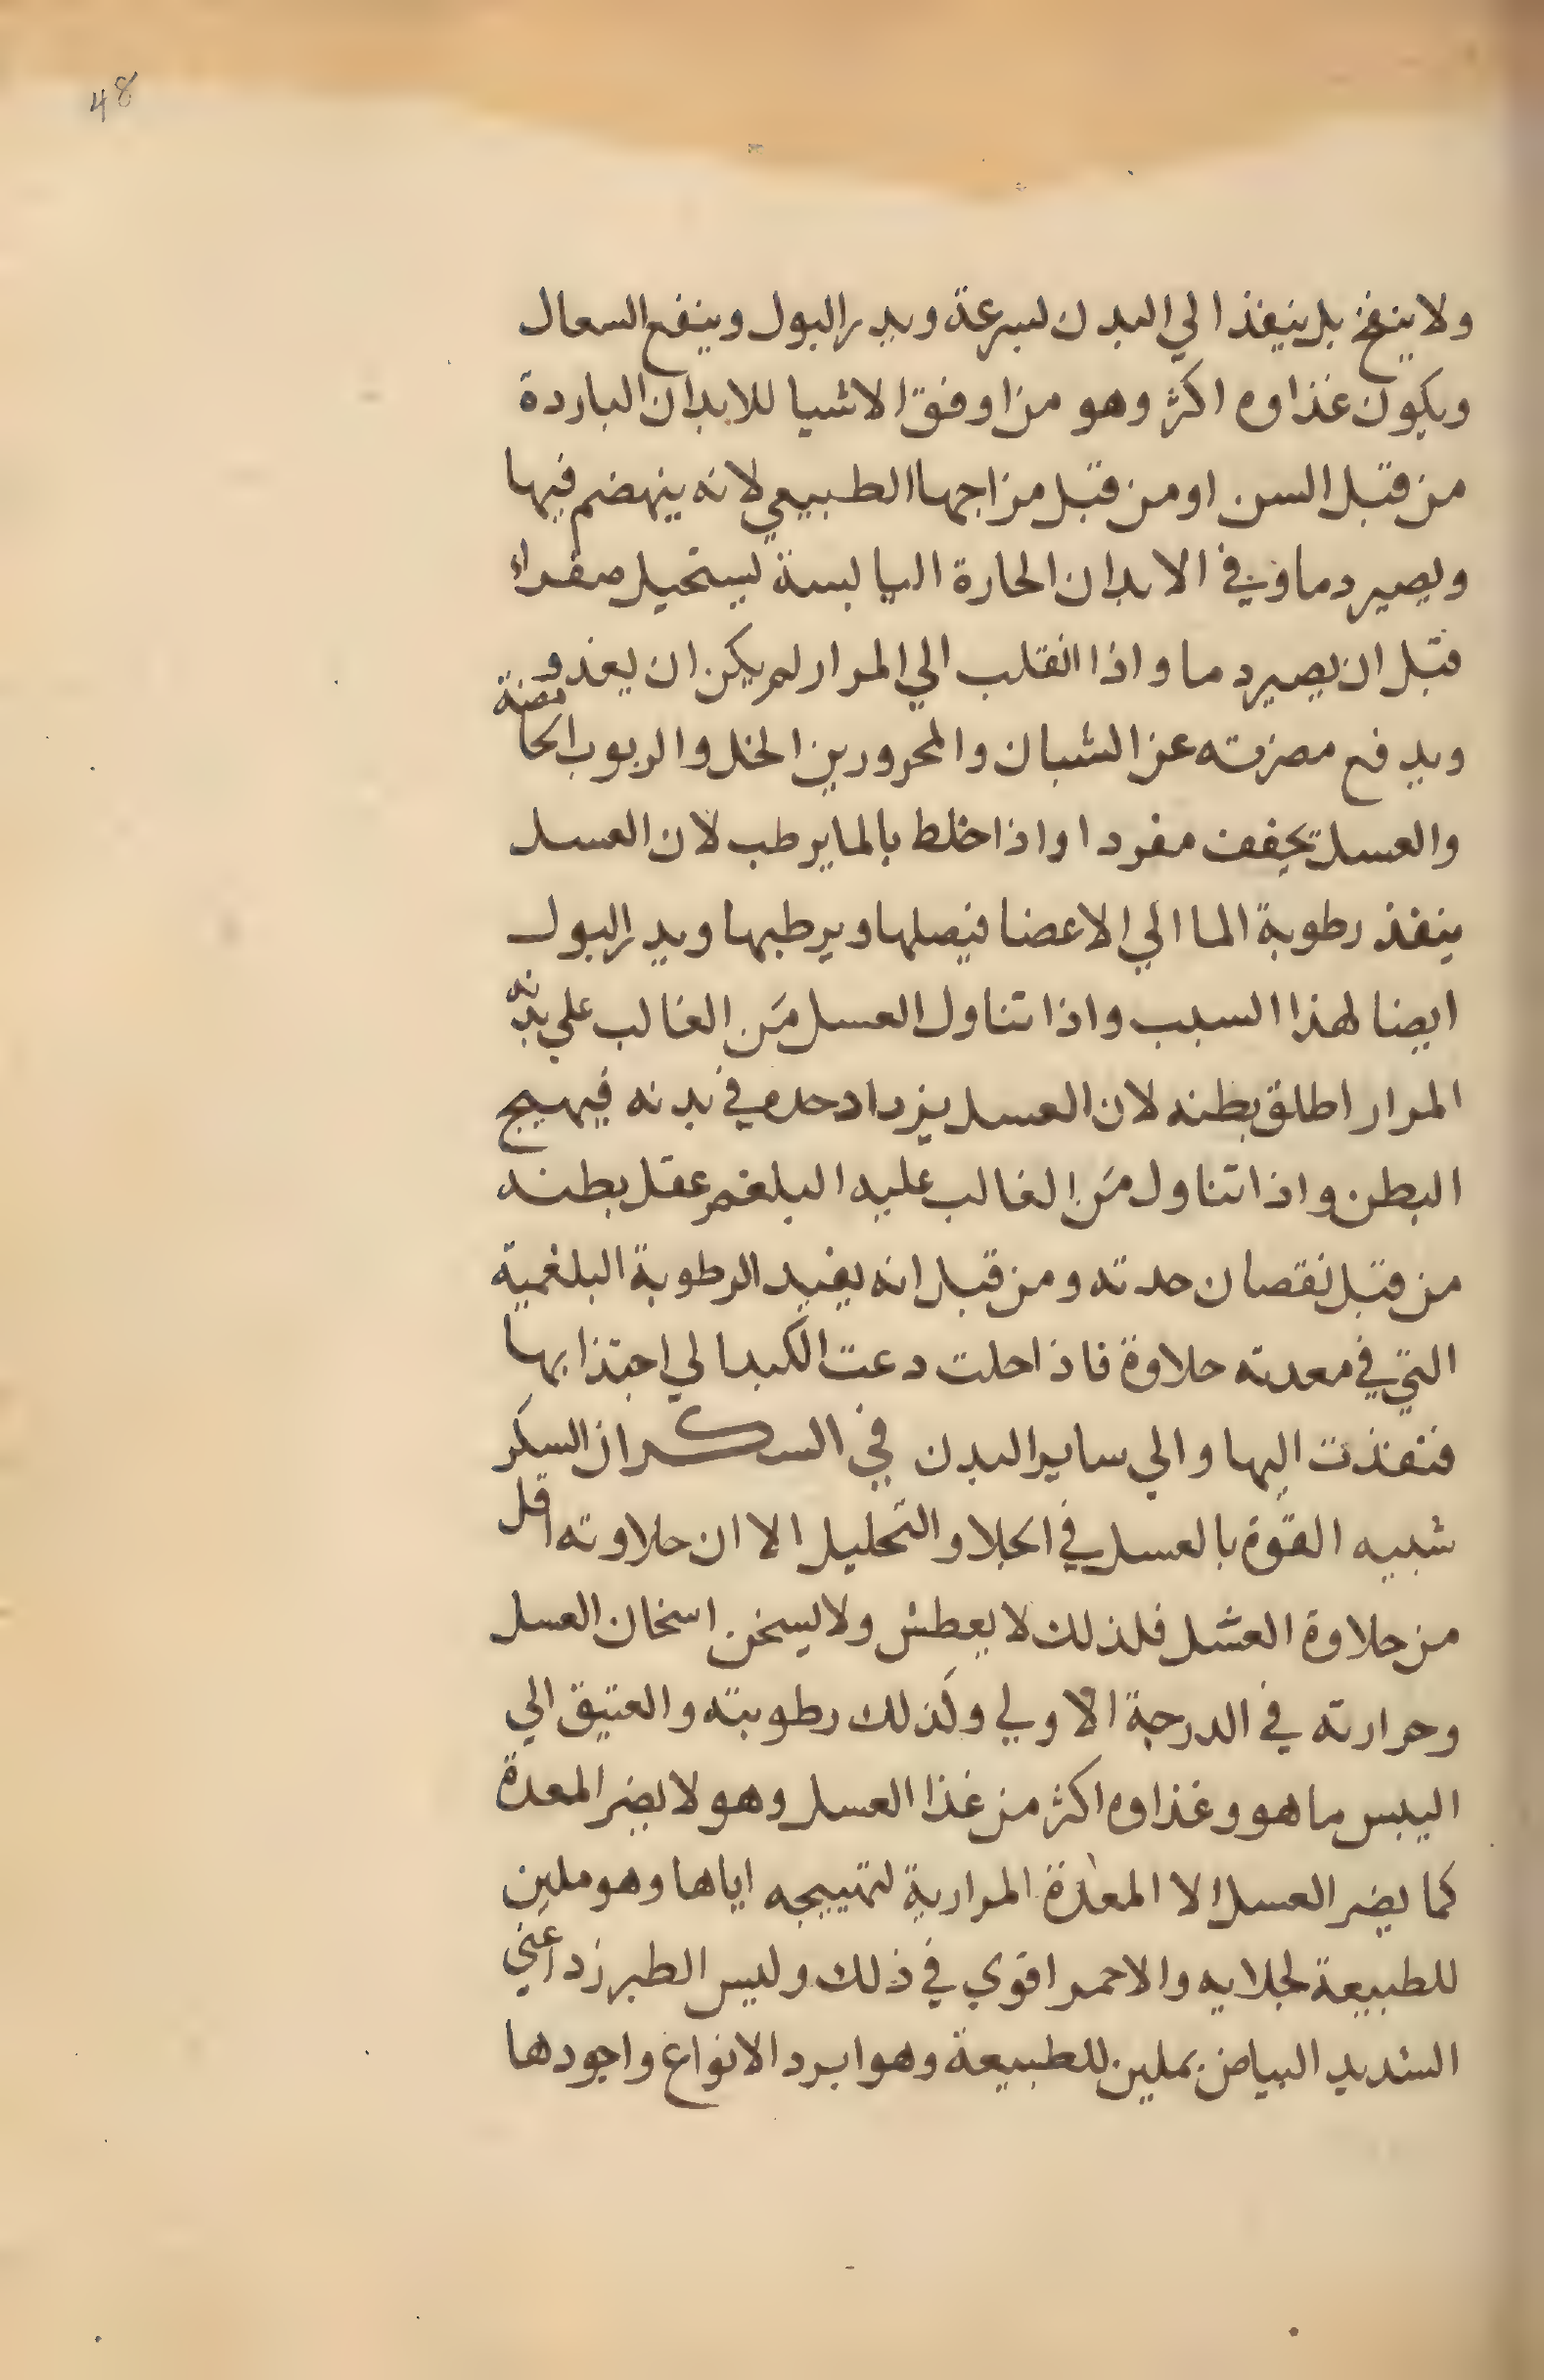 48
ولا ينفخ بل ينفذ الي البدن لسرعة ويدر البول وينفع السعال
ويكون غذاوه اكثر وهو من اوفق الاشيا للابدان الباردة
من قبل السن او من قبل مزاجها الطبيعي لانه ينهضم فيها
ويصير دما وفي الابدان الحارة اليابسة يستحيل صفراء
قبل ان يصير دما واذا انقلب الي المرار لم يكن ان يغذو
ويدفع مضرته عن الشبان والمحرورين الخل والربوب الحامضة
والعسل يجفف مفردا واذا خلط بالما يرطب لان العسل
ينفذ رطوبة الما الي الاعضا فيصلها ويرطبها ويدر البول
ايضا لهذا السبب واذا تناول العسل مَن الغالب علي بدنه
المرار اطلق بطنه لان العسل يزداد حده في بدنه فيهيج
البطن واذا تناول مَن الغالب عليه البلغم عقل بطنه
من قبل نقصان حدته ومن قبل انه يفيد الرطوبة البلغمية
التي في معدته حلاوة فاذا حلت دعت الكبد الي اجتذابها
فنفذت اليها والي ساير البدن في السكر ان السكر
شبيه القوة بالعسل في الجلا والتحليل الا ان حلاوته اقل
من حلاوة العسل فلذلك لا يعطش ولا يسخن اسخان العسل
وحرارته في الدرجة الاولي وكذلك رطوبته والعتيق الي
اليبس ما هو وغذاوه اكثر من غذا العسل وهو لا يضر المعدة
كما يضر العسل الا المعدة المرارية لتهييجه اياها وهو ملين
للطبيعة لجلايه والاحمر اقوي في ذلك وليس الطبرزد اعني
الشديد البياض بملين للطبيعة وهو ابرد الانواع واجودها